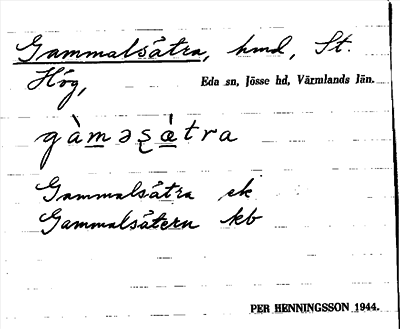 Gammalsåtra, hmd, St.
Hög,
Eda sn, Jösse hd, Värmlands län.
gàməʂátra
Gammalsåtra ek
Gammalsåtern kb
PER HENNINGSSON 1944.